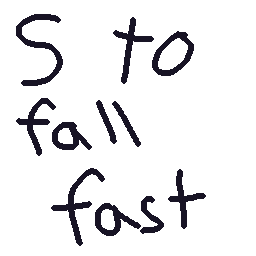 S to
fall
fast